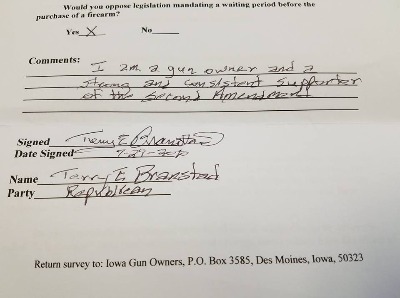 Would you oppose legislation mandating a waiting period before the
purchase of a firearm?
Yes X No
Comments: I am a gun owner and a
strong and consistent supporter
of the Second Amendment
Signed Terry E Branstad
Date Signed 7-29-2010
Name Terry E Branstad
Party Republican
Return survey to: Iowa Gun Owners, P.O. Box 3585, Des Moines, Iowa, 50323